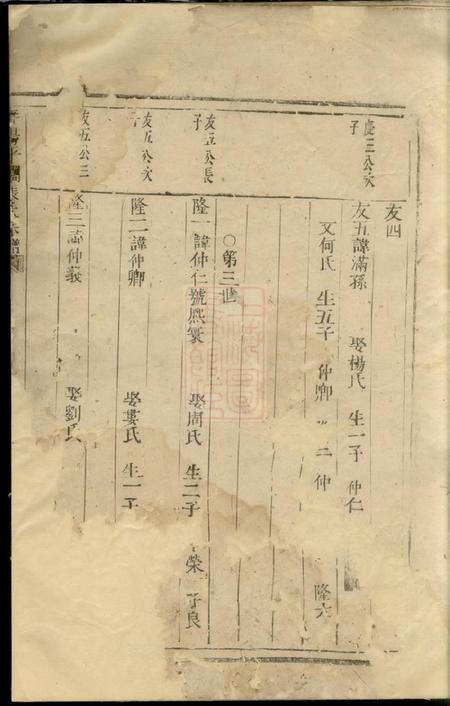 友四
慶三公次子
友五諱滿孫 娶楊氏 生一子 仲仁
又何氏 生五子 仲卿 二 仲 隆六
○第三世
友五公長子
隆一諱仲仁號熈寰 娶周氏 生二子 榮 子良
友五公次
隆二諱仲卿 娶婁氏 生一子
友五公三
隆三諱仲義 娶劉氏